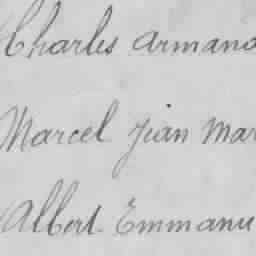 Charles Armand
Marcel Jean Mar
Albert Emmanu